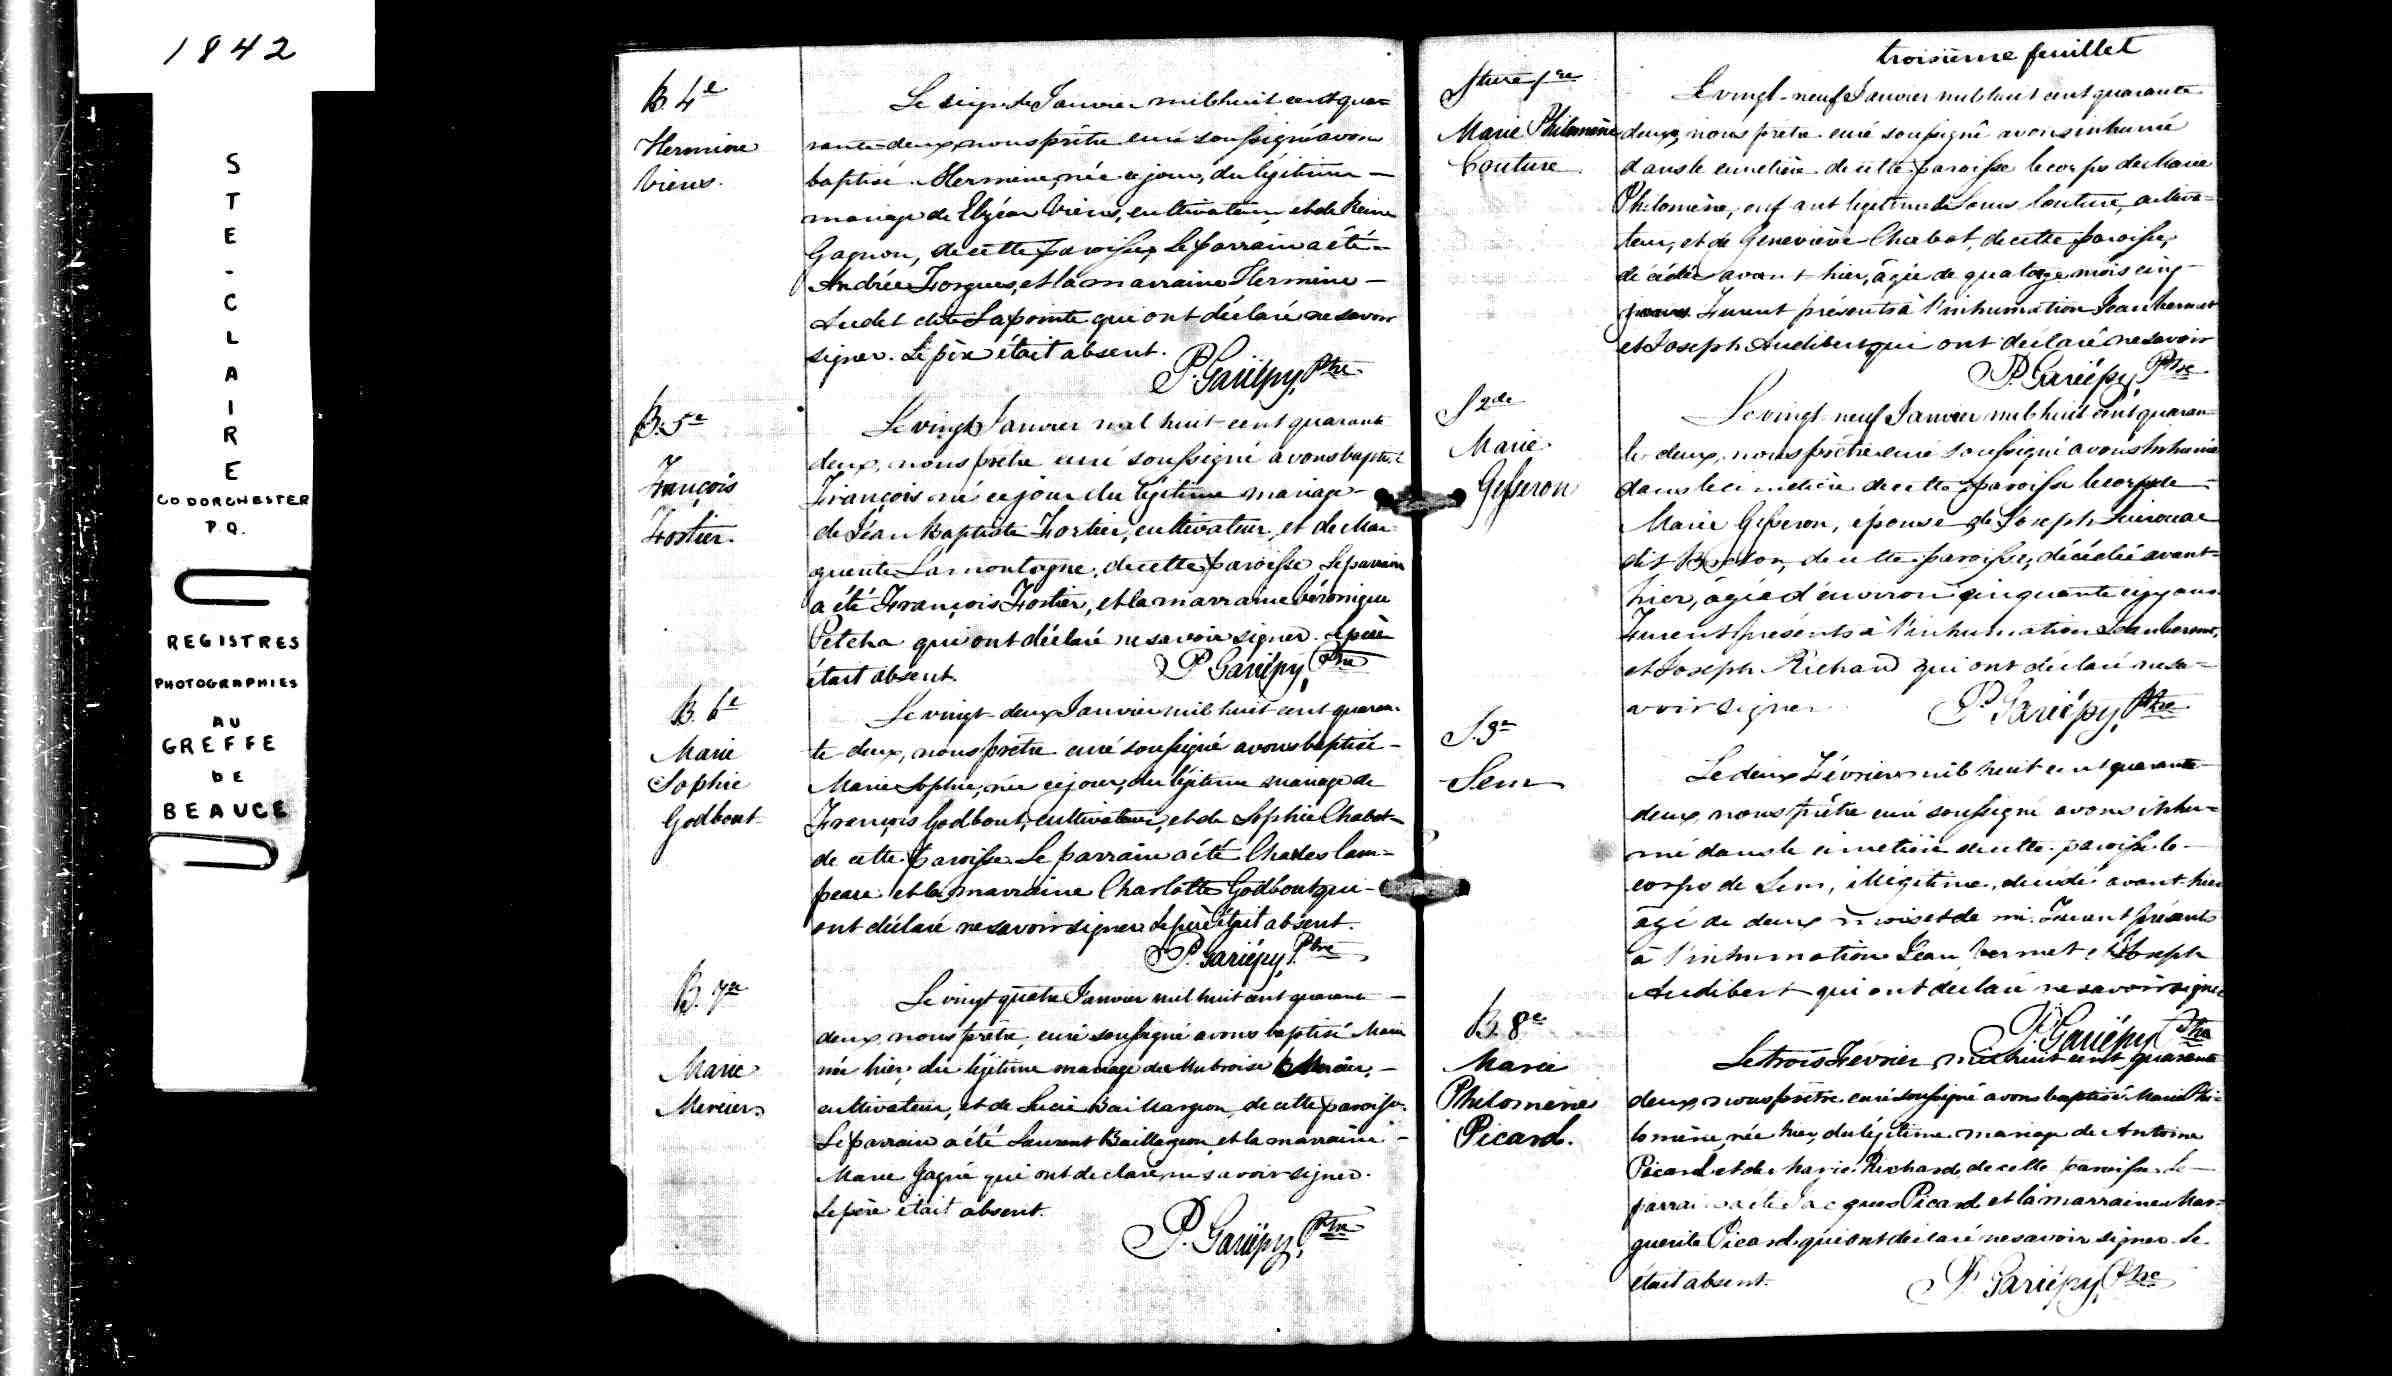 1842
STE-CLAIRE
CO DORCHESTER
P.Q.
REGISTRES
PHOTOGRAPHIES
AU
GREFFE
DE
BEAUCE
B. 4e
Hermine
Viens.
Le seize Janvier mil huit cent qua=
rante-deux, nous prêtre curé soussigné avons
baptisé Hermine, née ce jour, du légitime –
mariage de Elzéar Viens, cultivateur, et de Reine
Gagnon, de cette paroisse. Le parrain a été –
André Forgues, et la marraine Hermine –
Audet dite Lapointe qui ont déclaré ne savoir
signer. Le père était absent.
P. Gariépy, Ptre
B. 5e
François
Fortier.
Le vingt Janvier mil huit cent quarante
deux, nous prêtre curé soussigné avons baptisé
François né ce jour du légitime mariage –
de Jean Baptiste Fortier, cultivateur, et de Mar-
guerite Lamontagne, de cette paroisse. Le parrain
a été François Fortier, et la marraine Véronique
Petcha qui ont déclaré ne savoir signer. Le père
était absent.
P. Gariépy, Ptre
B. 6e
Marie
Sophie
Godbout
Le vingt-deux Janvier mil huit cent quaran-
te deux, nous prêtre curé soussigné avons baptisé –
Marie Sophie, née ce jour, du légitime mariage de
François Godbout, cultivateur, et de Sophie Chabot –
de cette paroisse. Le parrain a été Charles Cam=
peau et la marraine Charlotte Godbout qui –
ont déclaré ne savoir signer. Le père était absent.
P. Gariépy, Ptre
B. 7e
Marie
Mercier
Le vingt quatre Janvier mil huit cent quarante –
deux, nous prêtre, curé soussigné avons baptisé Marie
née hier, du légitime mariage de Ambroise Mercier, –
cultivateur, et de Lucie Baillargeon, de cette paroisse.
Le parrain a été Laurent Baillargeon, et la marraine –
Marie Gagné qui ont déclaré ne savoir signer.
Le père était absent.
P. Gariépy, Ptre
troisième feuillet
Sture 1re
Marie Philomène
Couture
Le vingt-neuf Janvier mil huit cent quarante
deux, nous prêtre curé soussigné avons inhumé
dans le cimetière de cette paroisse le corps de Marie
Philomène, enfant légitime de Louis Couture, cultiva=
teur, et de Geneviève Chabot, de cette paroisse,
décédée avant-hier, âgée de quatorze mois cinq –
jours. Furent présents à l'inhumation Jean Vermet
et Joseph Audibert qui ont déclaré ne savoir
P. Gariépy, Ptre
S 2de
Marie
Gesseron
Le vingt-neuf Janvier mil huit cent quaran=
te deux, nous prêtre curé soussigné avons inhumé
dans le cimetière de cette paroisse le corps de –
Marie Gesseron, épouse de Joseph
dit Breton, de cette paroisse, décédée avant=
hier, âgée d'environ cinquante cinq ans.
Furent présents à l'inhumation Jean Vermet,
et Joseph Richard qui ont déclaré ne sa=
voir signer.
P. Gariépy, Ptre
S. 3e
Sem
Le deux Février mil huit cent quarante –
deux, nous prêtre curé soussigné avons inhu=
mé dans le cimetière de cette paroisse le –
corps de Sem, illégitime, décédé avant-hier
âgé de deux mois et demi. Furent présents
à l'inhumation Jean Vermet et Joseph
Audibert qui ont déclaré ne savoir signer
P. Gariépy, Ptre
B. 8e
Marie
Philomène
Picard.
Le trois Février mil huit cent quarante
deux, nous prêtre curé soussigné avons baptisé Marie Phi=
lomène, née hier, du légitime mariage de Antoine
Picard et de Marie Richard, de cette paroisse. Le –
parrain a été Jacques Picard et la marraine Mar=
guerite Picard qui ont déclaré ne savoir signer. Le
était absent.
P. Gariépy, Ptre